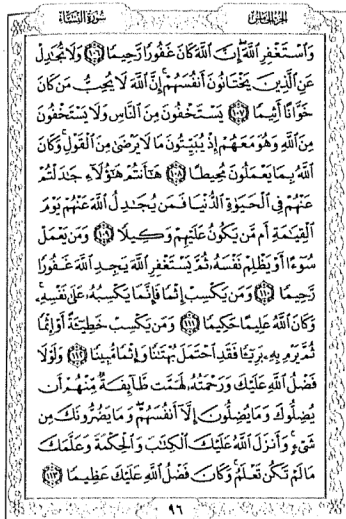 الجزء الخامس سورة النساء
وَاسْتَغْفِرِ اللَّهَ إِنَّ اللَّهَ كَانَ غَفُورًا رَّحِيمًا ﴿١٠٦﴾ وَلَا تُجَادِلْ
عَنِ الَّذِينَ يَخْتَانُونَ أَنفُسَهُمْ إِنَّ اللَّهَ لَا يُحِبُّ مَن كَانَ
خَوَّانًا أَثِيمًا ﴿١٠٧﴾ يَسْتَخْفُونَ مِنَ النَّاسِ وَلَا يَسْتَخْفُونَ
مِنَ اللَّهِ وَهُوَ مَعَهُمْ إِذْ يُبَيِّتُونَ مَا لَا يَرْضَىٰ مِنَ الْقَوْلِ وَكَانَ
اللَّهُ بِمَا يَعْمَلُونَ مُحِيطًا ﴿١٠٨﴾ هَا أَنتُمْ هَٰؤُلَاءِ جَادَلْتُمْ
عَنْهُمْ فِي الْحَيَاةِ الدُّنْيَا فَمَن يُجَادِلُ اللَّهَ عَنْهُمْ يَوْمَ
الْقِيَامَةِ أَم مَّن يَكُونُ عَلَيْهِمْ وَكِيلًا ﴿١٠٩﴾ وَمَن يَعْمَلْ
سُوءًا أَوْ يَظْلِمْ نَفْسَهُ ثُمَّ يَسْتَغْفِرِ اللَّهَ يَجِدِ اللَّهَ غَفُورًا
رَّحِيمًا ﴿١١٠﴾ وَمَن يَكْسِبْ إِثْمًا فَإِنَّمَا يَكْسِبُهُ عَلَىٰ نَفْسِهِ
وَكَانَ اللَّهُ عَلِيمًا حَكِيمًا ﴿١١١﴾ وَمَن يَكْسِبْ خَطِيئَةً أَوْ إِثْمًا
ثُمَّ يَرْمِ بِهِ بَرِيئًا فَقَدِ احْتَمَلَ بُهْتَانًا وَإِثْمًا مُّبِينًا ﴿١١٢﴾ وَلَوْلَا
فَضْلُ اللَّهِ عَلَيْكَ وَرَحْمَتُهُ لَهَمَّت طَّائِفَةٌ مِّنْهُمْ أَن
يُضِلُّوكَ وَمَا يُضِلُّونَ إِلَّا أَنفُسَهُمْ وَمَا يَضُرُّونَكَ مِن
شَيْءٍ وَأَنزَلَ اللَّهُ عَلَيْكَ الْكِتَابَ وَالْحِكْمَةَ وَعَلَّمَكَ
مَا لَمْ تَكُن تَعْلَمُ وَكَانَ فَضْلُ اللَّهِ عَلَيْكَ عَظِيمًا ﴿١١٣﴾
٩٦